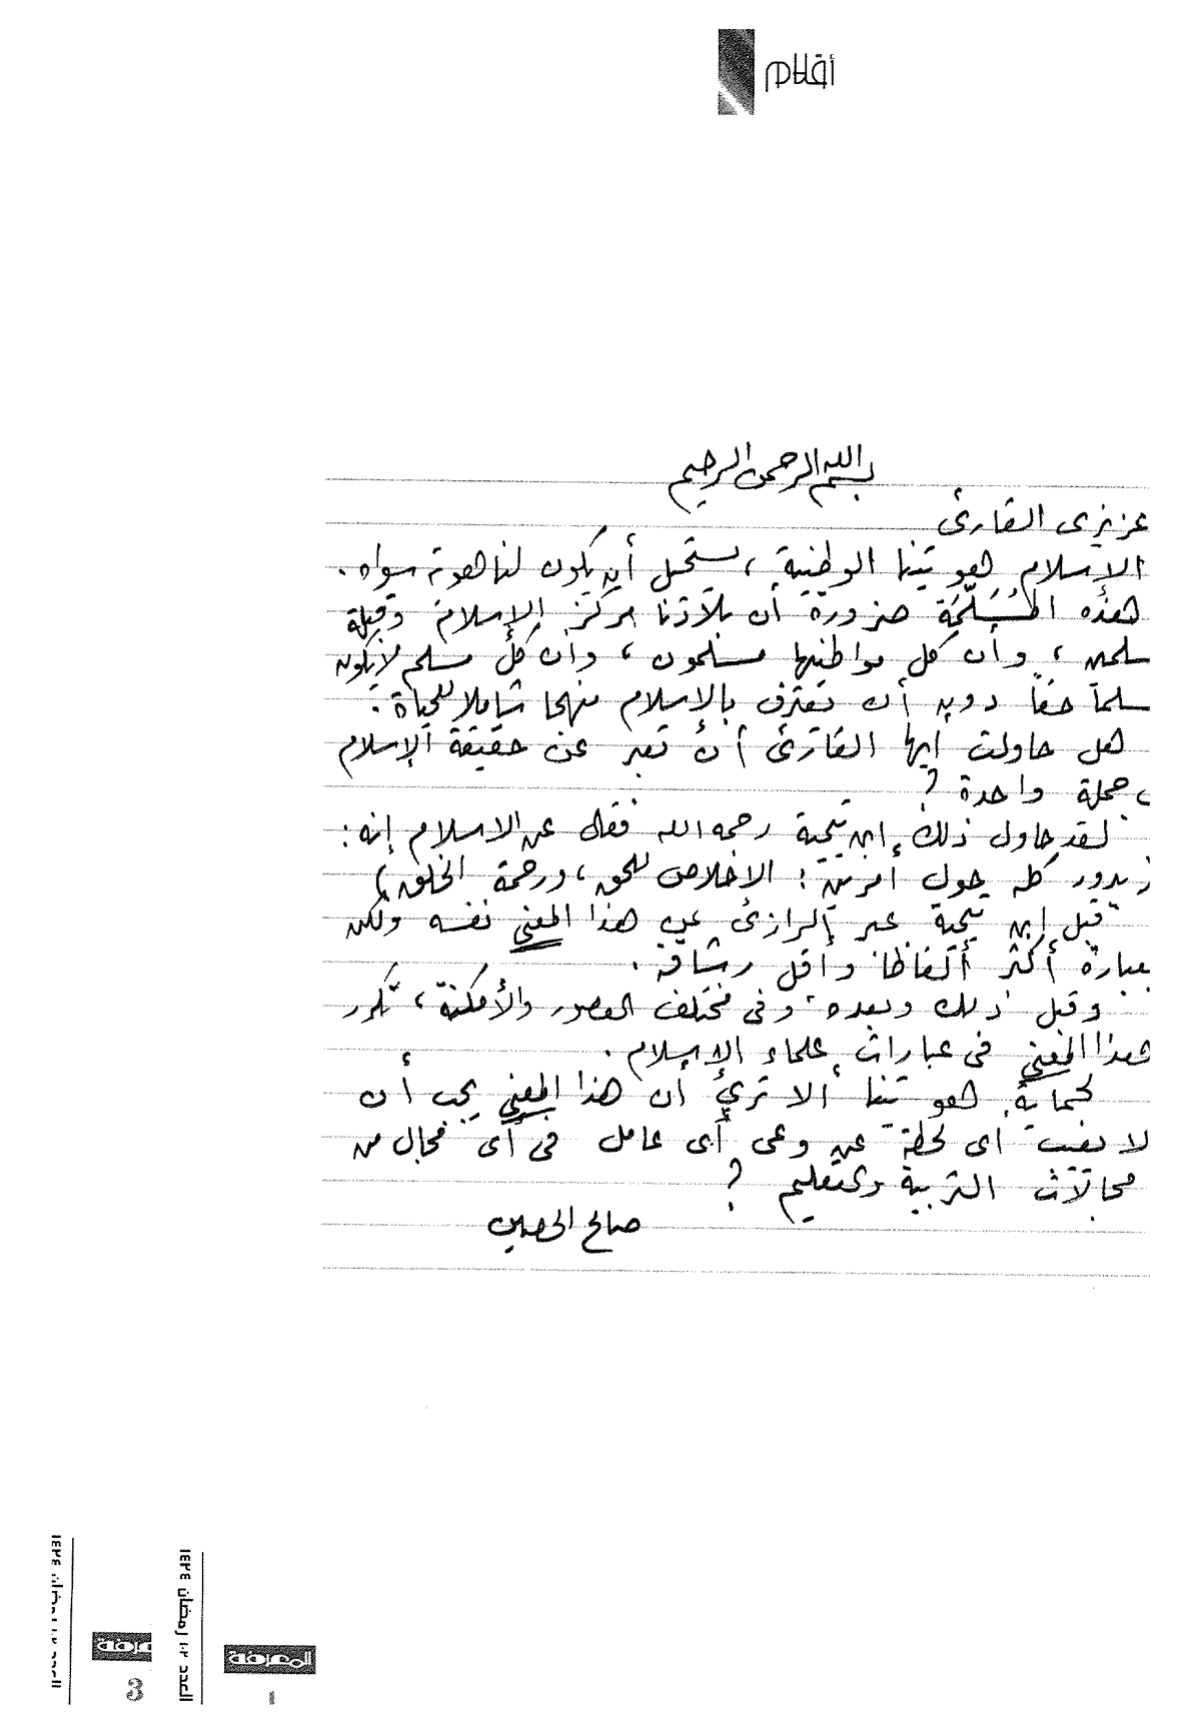 أقلام
بسم الله الرحمن الرحيم
عزيزى القارئ
الإسلام هويتنا الوطنية ، يستحيل أن يكون لنا هوية سواه .
هذه المُسَلَّمَة ضرورة أن بلادنا مركز الإسلام وقبلة
سلمين ، وأن كل مواطنيها مسلمون ، وأن كل مسلم لا يكون
سلماً حقاً دون أن يعترف بالإسلام منهجا شاملا للحياة .
هل حاولت أيها القارئ أن تعبر عن حقيقة الإسلام
جملة واحدة ؟
لقد حاول ذلك ابن تيمية رحمه الله فقال عن الاسلام إنه :
يدور كله حول أمرين : الاخلاص للحق ، ورحمة الخلق )
قبل ابن تيمية عبر الرازى عن هذا المعنى نفسه ولكن
بعبارة أكثر ألفاظا وأقل رشاقة .
وقبل ذلك وبعده وفى مختلف العصور والأمكنة ، تكرر
هذا المعنى فى عبارات علماء الإسلام .
لحماية هويتنا ألا ترى أن هذا المعنى يجب أن
لا يغيب أى لحظة عن وعى أى عامل فى أى مجال من
مجالات التربية والتعليم ؟
صالح الحصين
العدد ١٠٢ رمضان ١٤٢٤
المعرفة
3